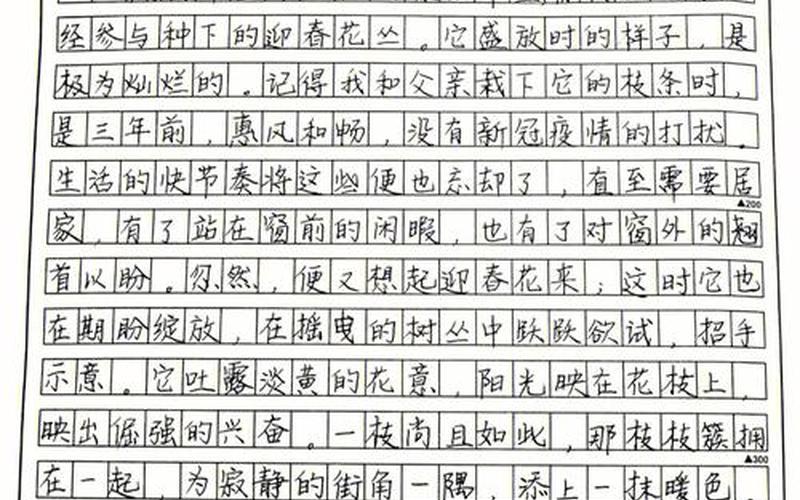 经参与种下的迎春花丛。它盛放时的样子，是
极为灿烂的。记得我和父亲栽下它的枝条时，
是三年前，惠风和畅，没有新冠疫情的打扰。
生活的快节奏将这些便也忘却了，直至需要居
▲200
家，有了站在窗前的闲暇，也有了对窗外的翘
首以盼。忽然，便又想起迎春花来；这时它也
在期盼绽放，在摇曳的树丛中跃跃欲试，招手
示意。它吐露淡黄的花意，阳光映在花枝上，
映出倔强的兴奋。一枝尚且如此，那枝枝簇拥
▲300
在一起，为寂静的街角一隅，添上一抹暖色。